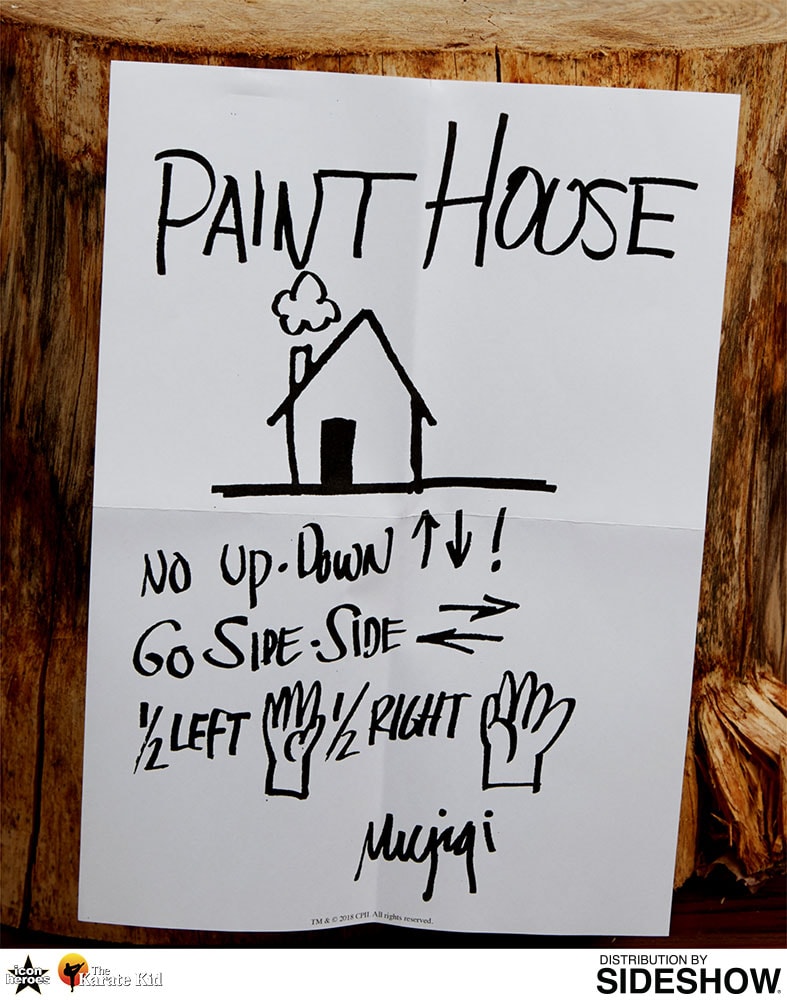 PAINT HOUSE
NO UP-DOWN ↑↓!
GO SIDE-SIDE ⇄
1/2 LEFT 1/2 RIGHT
Miyagi
TM & © 2018 CPII. All rights reserved.
icon heroes
The Karate Kid
DISTRIBUTION BY
SIDESHOW.